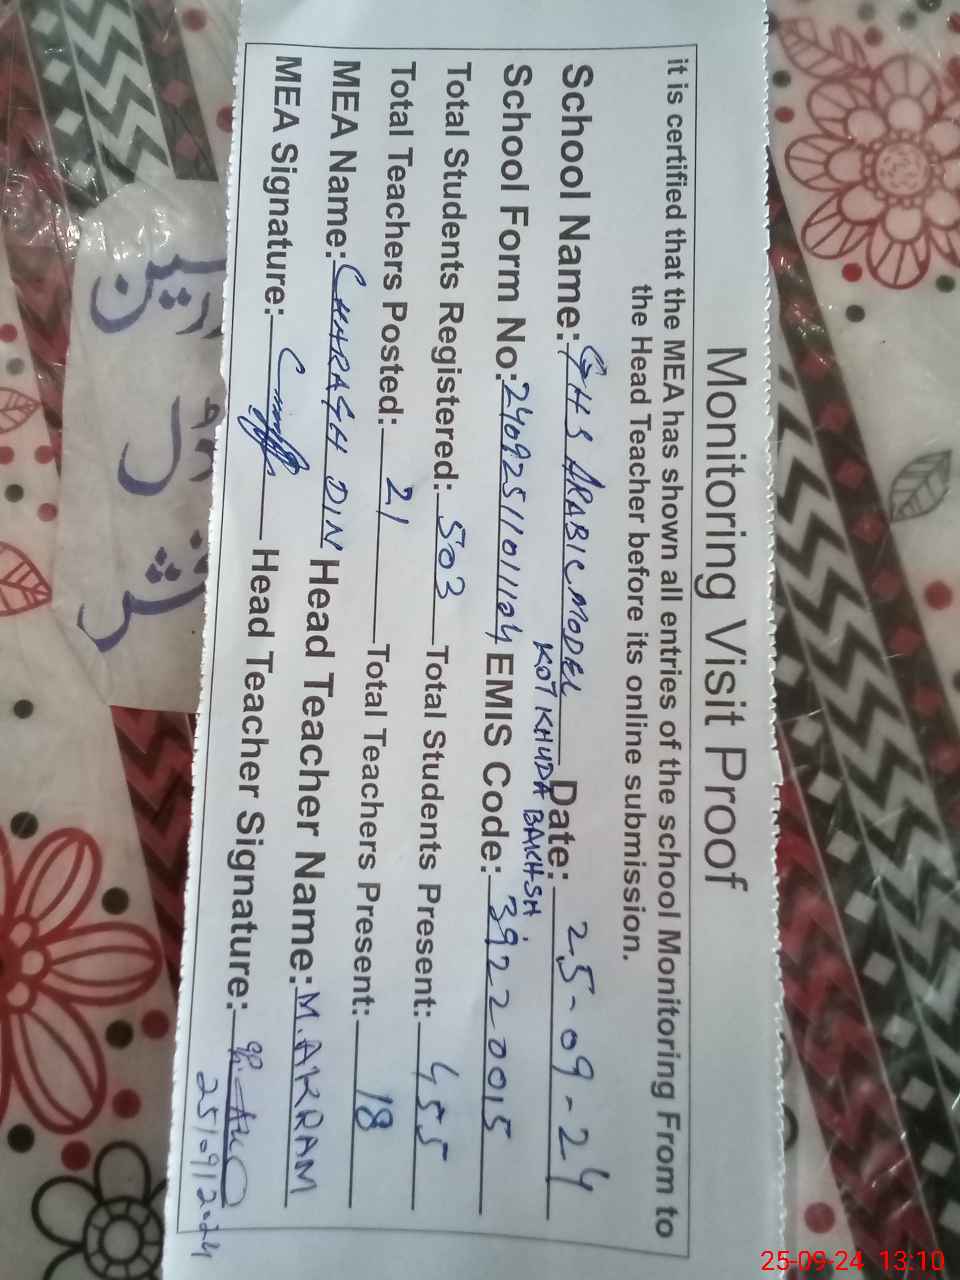 Monitoring Visit Proof
it is certified that the MEA has shown all entries of the school Monitoring From to
the Head Teacher before its online submission.
School Name: GHS ARABIC MODEL Date: 25-09-24
KOT KHUDA BAKHSH
School Form No: 24092511011124 EMIS Code: 39220015
Total Students Registered: 503 Total Students Present: 455
Total Teachers Posted: 21 Total Teachers Present: 18
MEA Name: CHARAGH DIN Head Teacher Name: M. AKRAM
MEA Signature: Head Teacher Signature:
25/09/2024
25-09-24 13:10